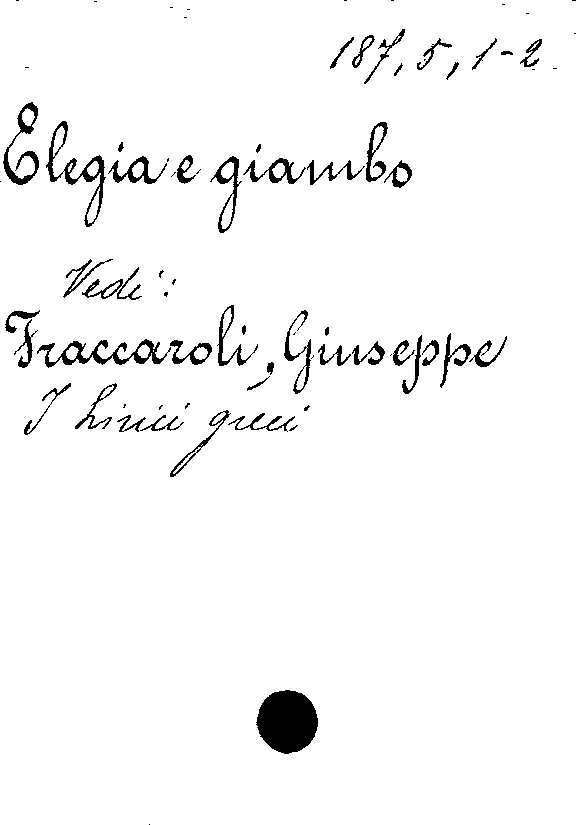 187, 5, 1-2
Elegia e giambo
Vedi:
Fraccaroli, Giuseppe
I Lirici greci